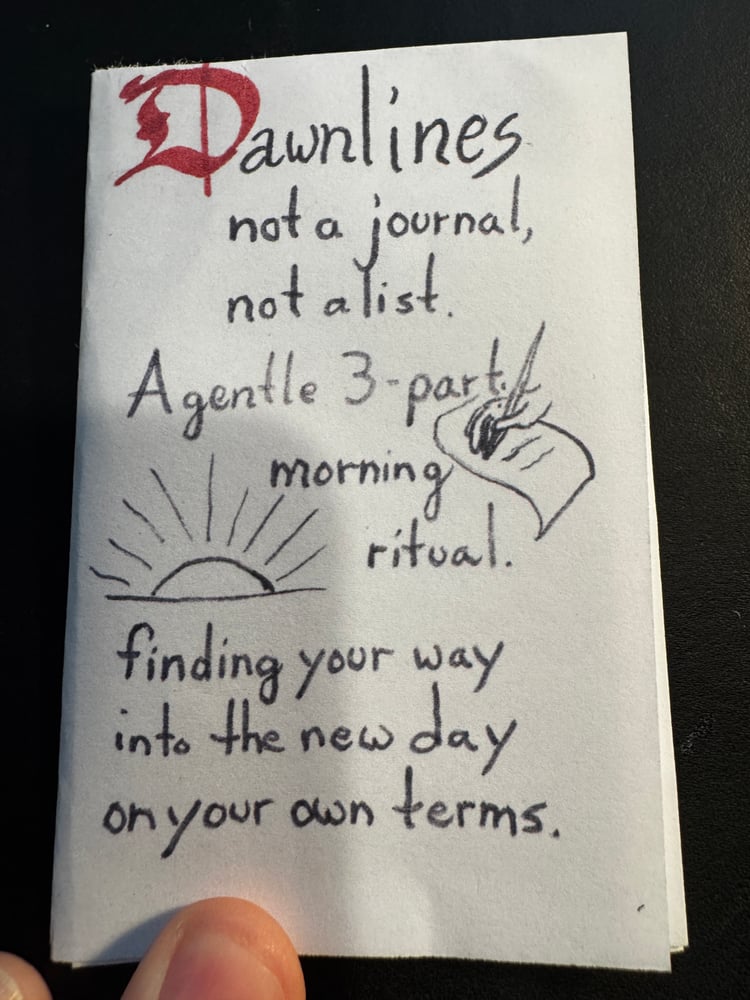 Dawnlines
not a journal,
not a list.
A gentle 3-part
morning
ritual.
finding your way
into the new day
on your own terms.